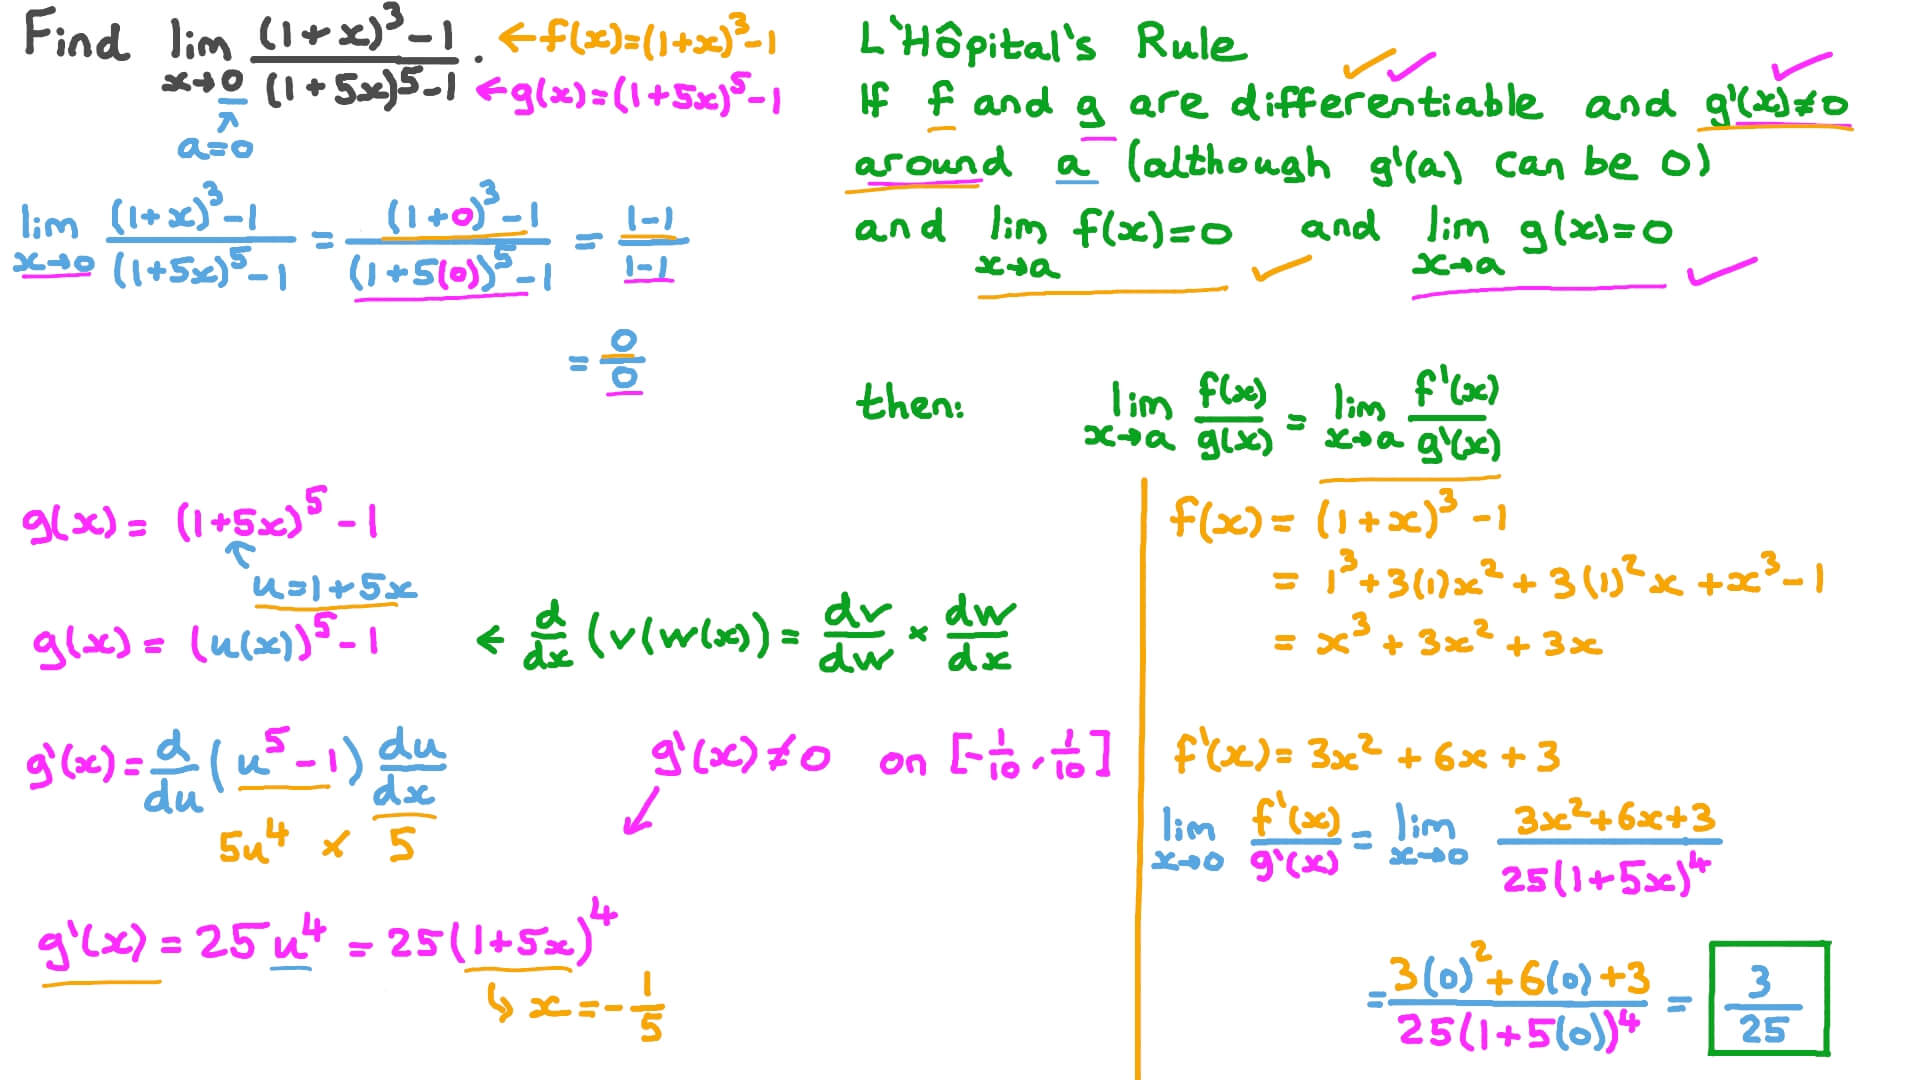 Find lim x→0 ((1+x)^3-1)/((1+5x)^5-1).
← f(x)=(1+x)^3-1
← g(x)=(1+5x)^5-1
↑
a=0
lim x→0 ((1+x)^3-1)/((1+5x)^5-1) = ((1+0)^3-1)/((1+5(0))^5-1) = (1-1)/(1-1)
= 0/0
L'Hôpital's Rule
If f and g are differentiable and g'(x)≠0
around a (although g'(a) can be 0)
and lim x→a f(x)=0 and lim x→a g(x)=0
then: lim x→a f(x)/g(x) = lim x→a f'(x)/g'(x)
g(x) = (1+5x)^5 -1
u=1+5x
g(x) = (u(x))^5-1
← d/dx (v(w(x)) = dv/dw × dw/dx
g'(x)= d/du (u^5-1) du/dx
5u^4 × 5
g'(x)≠0 on [-1/10, 1/10]
g'(x) = 25u^4 = 25(1+5x)^4
↳ x = -1/5
f(x) = (1+x)^3 -1
= 1^3+3(1)x^2+3(1)^2x+x^3-1
= x^3+3x^2+3x
f'(x)= 3x^2+6x+3
lim x→0 f'(x)/g'(x) = lim x→0 (3x^2+6x+3)/(25(1+5x)^4)
= (3(0)^2+6(0)+3)/(25(1+5(0))^4) = 3/25